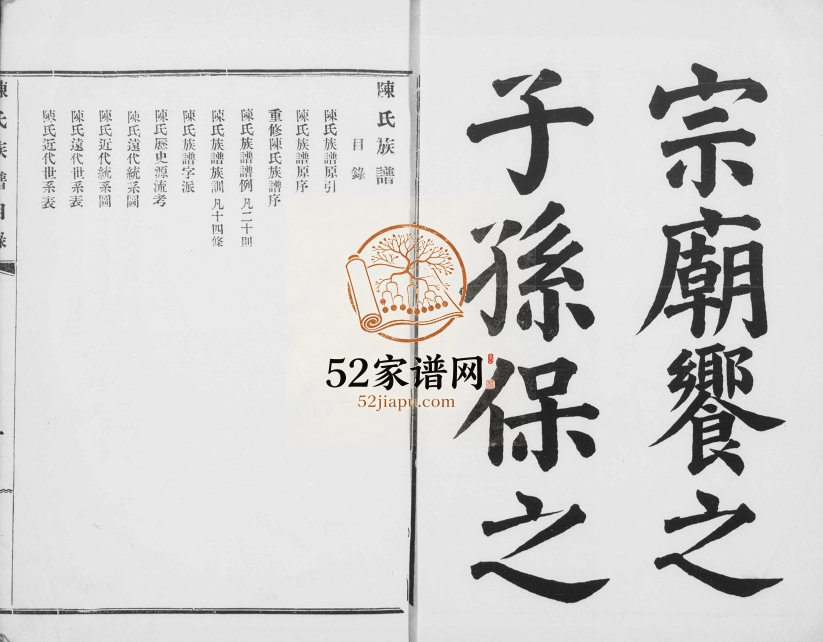 宗廟饗之
子孫保之
陳氏族譜
目錄
陳氏族譜原引
陳氏族譜原序
重修陳氏族譜序
陳氏族譜譜例 凡二十則
陳氏族譜族訓 凡十四條
陳氏族譜字派
陳氏歷史源流考
陳氏遠代統系圖
陳氏近代統系圖
陳氏遠代世系表
陳氏近代世系表
陳氏族譜目錄
52家谱网
52jiapu.com